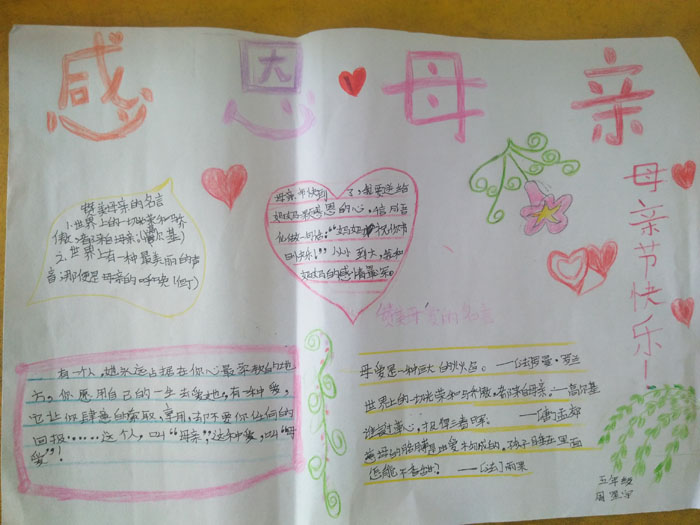 感恩母亲
母亲节快乐！
赞美母亲的名言
1.世界上的一切光荣和骄
傲,都来自母亲.(高尔基)
2.世界上有一种最美丽的声
音,那便是母亲的呼唤!(但丁)
母亲节快到了,我要送给
妈妈一颗感恩的心.
“妈妈,祝你节
日快乐!”从小到大,我和
妈妈的感情最深.
赞美母亲的名言
有一个人,她永远占据在你心最柔软的地
方,你愿用自己的一生去爱她,有一种爱,
它让你肆意的索取,享用,却不要你任何的
回报……这个人,叫“母亲”,这种爱,叫“母
爱”!
母爱是一种巨大的火焰。——[法]罗曼·罗兰
世界上的一切光荣和骄傲,都来自母亲。——高尔基
谁言寸草心,报得三春晖。——[唐]孟郊
慈母的胳膊是由爱构成的,孩子睡在里面
怎能不香甜?——[法]雨果
五年级
周